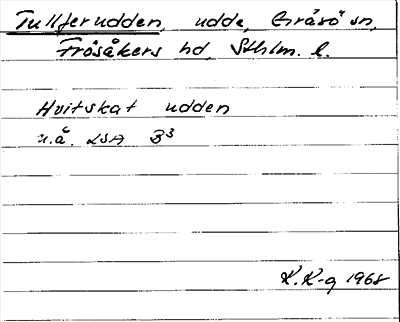 Tullferudden, udde, Gräsö sn,
Frösåkers hd, Sthlm. l.
Hvitskat udden
u.å. LSA B³
K.K-g 1968